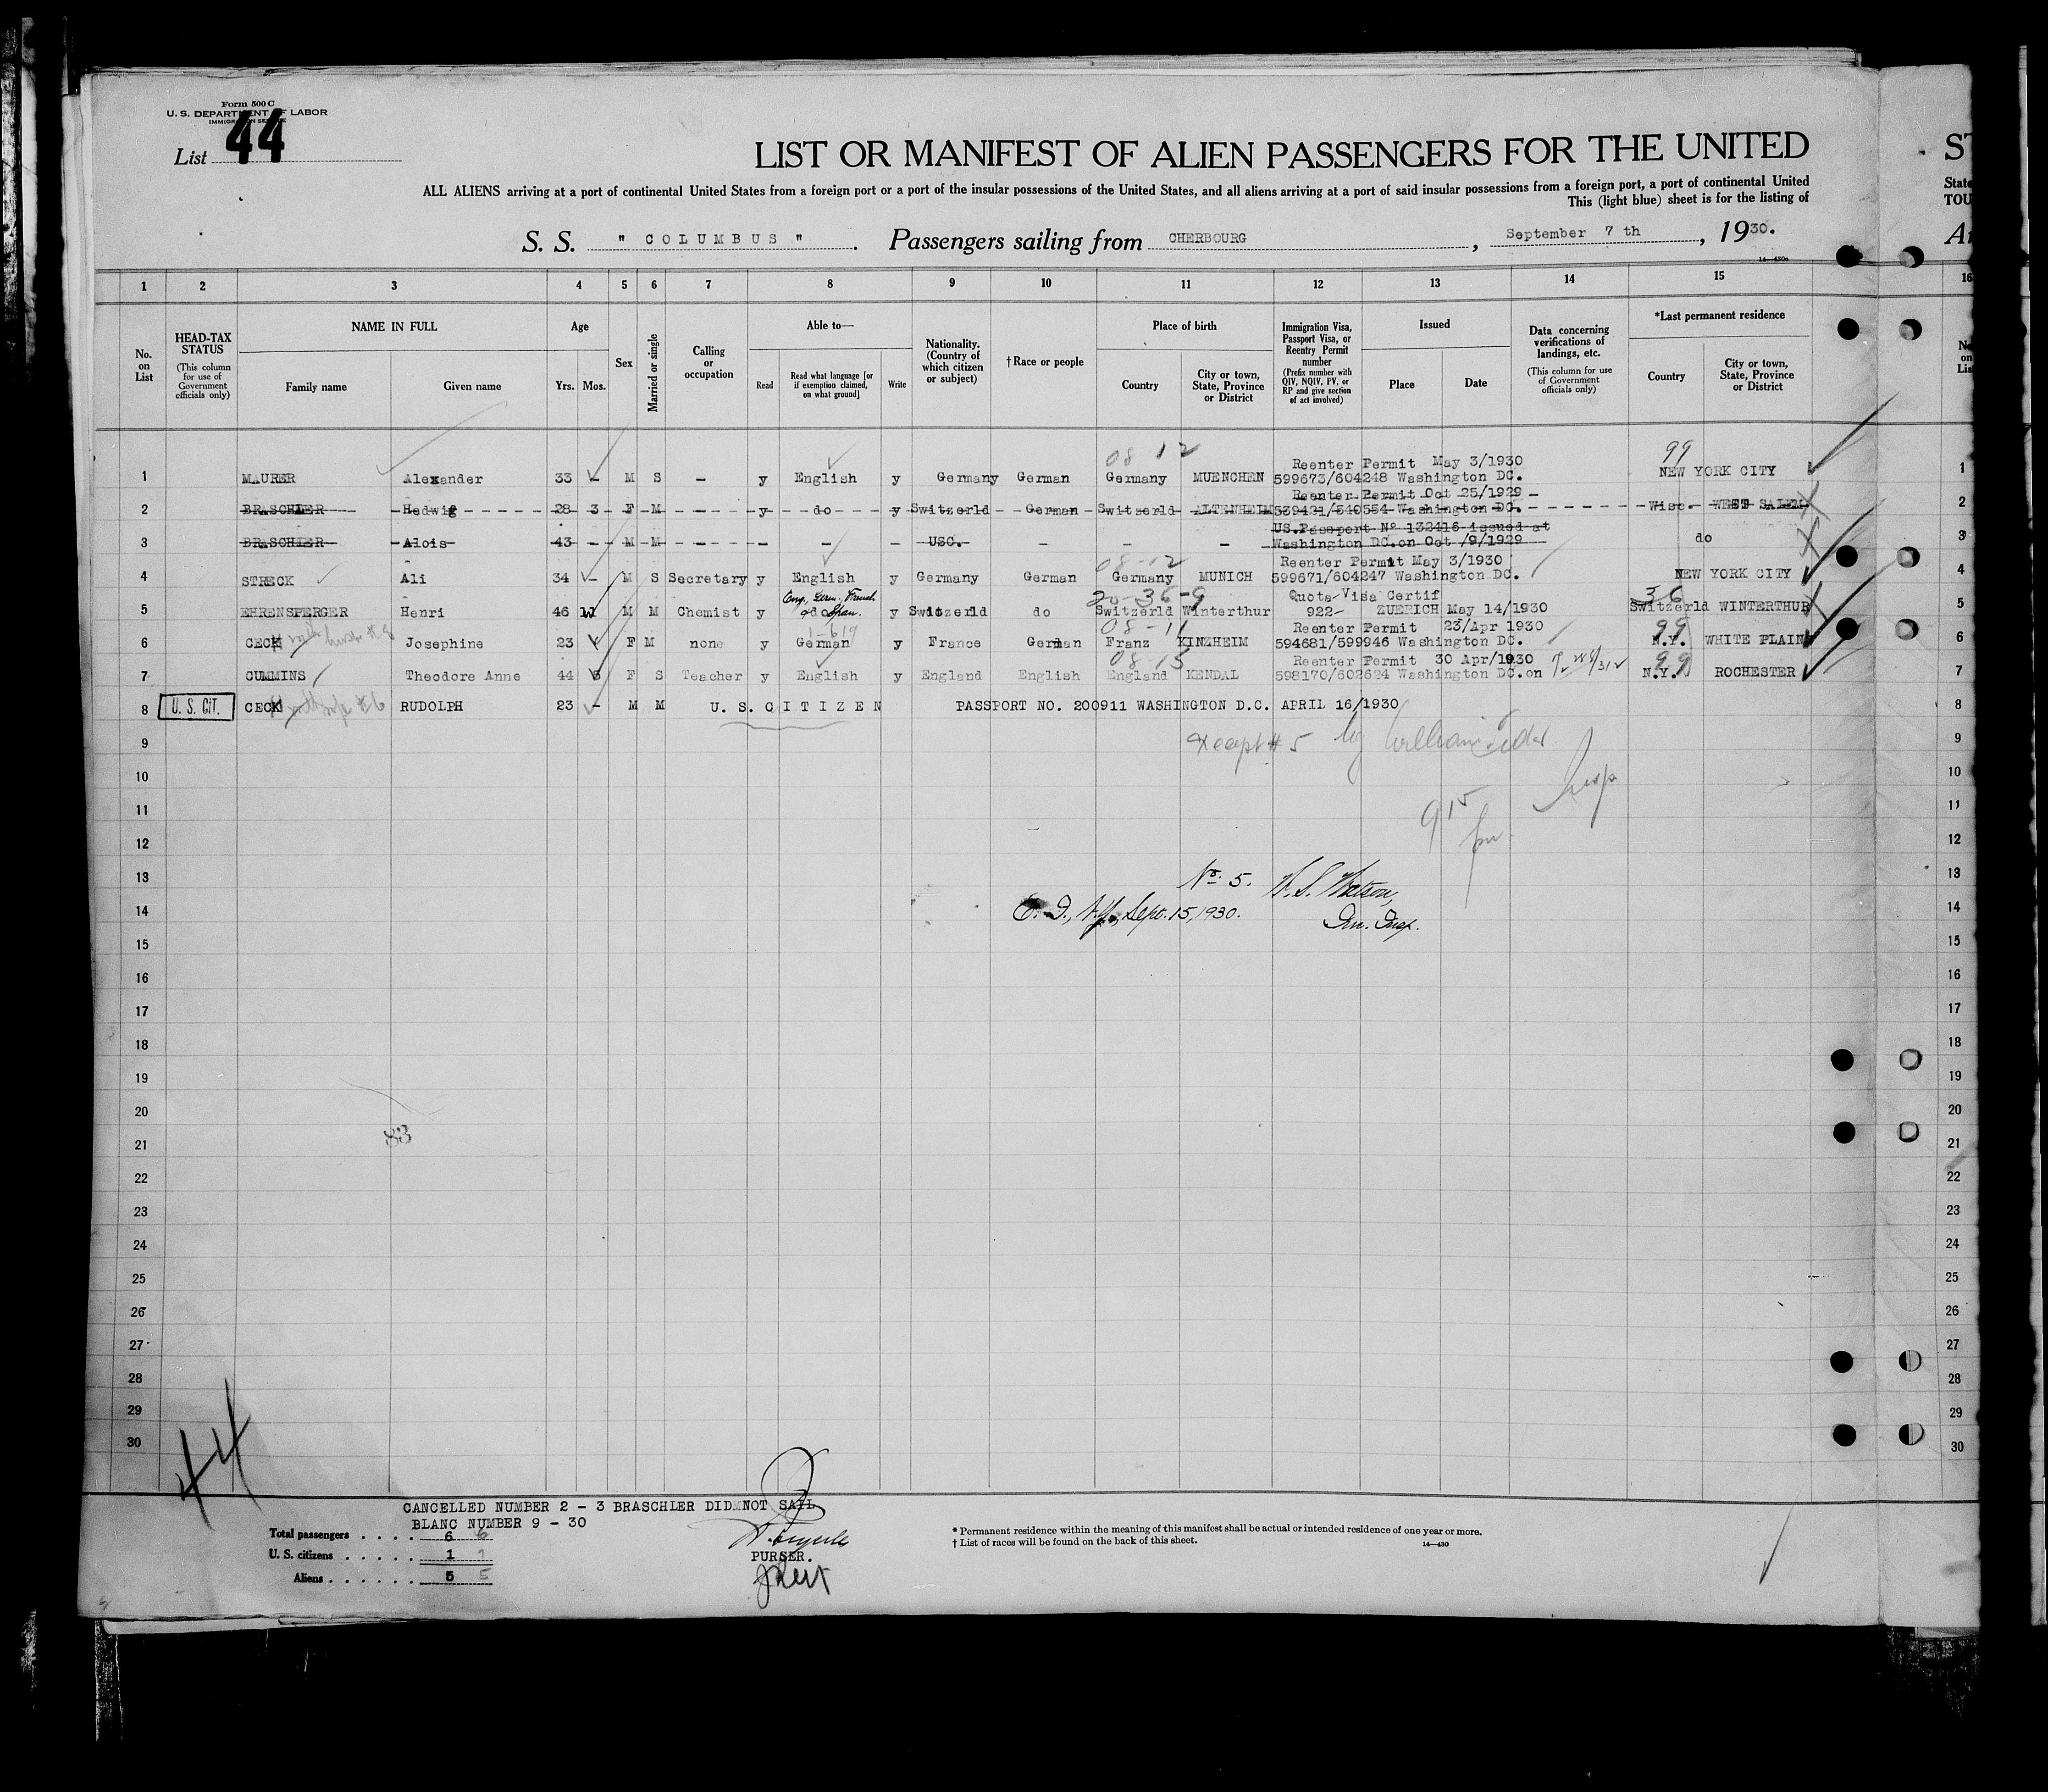 Form 500 C
U. S. DEPARTMENT OF LABOR
IMMIGRATION SERVICE
List 44
LIST OR MANIFEST OF ALIEN PASSENGERS FOR THE UNITED
ST
ALL ALIENS arriving at a port of continental United States from a foreign port or a port of the insular possessions of the United States, and all aliens arriving at a port of said insular possessions from a foreign port, a port of continental United
State
This (light blue) sheet is for the listing of
TOU
S. S. " COLUMBUS ". Passengers sailing from CHERBOURG, September 7 th, 1930.
14—430c
1 2 3 4 5 6 7 8 9 10 11 12 13 14 15 16
No. on List
HEAD-TAX STATUS (This column for use of Government officials only)
NAME IN FULL
Family name
Given name
Age
Yrs. Mos.
Sex
Married or single
Calling or occupation
Able to—
Read
Read what language [or if exemption claimed, on what ground]
Write
Nationality. (Country of which citizen or subject)
† Race or people
Place of birth
Country
City or town, State, Province or District
Immigration Visa, Passport Visa, or Reentry Permit number (Prefix number with QIV, NQIV, PV, or RP and give section of act involved)
Issued
Place
Date
Data concerning verifications of landings, etc. (This column for use of Government officials only)
*Last permanent residence
Country
City or town, State, Province or District
08 12
99
Reenter Permit May 3/1930
1 MAURER Alexander 33 - M S - y English y Germany German Germany MUENCHEN 599673/604248 Washington DC. NEW YORK CITY 1
Reenter Permit Oct 25/1929
2 BRASCHLER Hedwig 28 3 F M - y do y Switzerld German Switzerld ALTENHEIM 539421/540554 Washington DC. Wisc. WEST SALEM 2
US.Passport Nº 132416 issued at
3 BRASCHLER Alois 43 - M M - - - - USC. - - - Washington DC.on Oct /9/1929 do 3
08-12
Reenter Permit May 3/1930
4 STRECK Ali 34 - M S Secretary y English y Germany German Germany MUNICH 599671/604247 Washington DC. NEW YORK CITY 4
Eng, Germ, French
20-36-9
Quota-Visa Certif
36
5 EHRENSPERGER Henri 46 11 M M Chemist y do Span. y Switzerld do Switzerld Winterthur 922- ZUERICH May 14/1930 Switzerld WINTERTHUR 5
08-11
Reenter Permit 23/Apr 1930
99
6 CECH Josephine 23 F M none y German y France German Franz KINZHEIM 594681/599946 Washington DC. N.Y. WHITE PLAINS 6
08-13
Reenter Permit 30 Apr/1930
99
7 CUMMINS Theodore Anne 44 3 F S Teacher y English y England English England KENDAL 598170/602624 Washington DC.on N.Y. ROCHESTER 7
8 U. S. CIT. CECH RUDOLPH 23 - M M U. S. CITIZEN PASSPORT NO. 200911 WASHINGTON D.C. APRIL 16/1930 8
9 Except #5 by 9
10 Insp 10
11 9 15 11
12 pm. 12
13 No. 5. W. S. Watson, 13
14 E. I., N.Y., Sept. 15, 1930. Im. Insp. 14
15 15
16 16
17 17
18 18
19 19
20 20
21 21
22 22
23 23
24 24
25 25
26 26
27 27
28 28
29 29
30 30
44
CANCELLED NUMBER 2 - 3 BRASCHLER DID NOT SAIL
BLANC NUMBER 9 - 30
Total passengers . . . . 6 6
U. S. citizens . . . . . 1 1
Aliens . . . . . . 5 5
PURSER.
* Permanent residence within the meaning of this manifest shall be actual or intended residence of one year or more.
† List of races will be found on the back of this sheet.
14—430